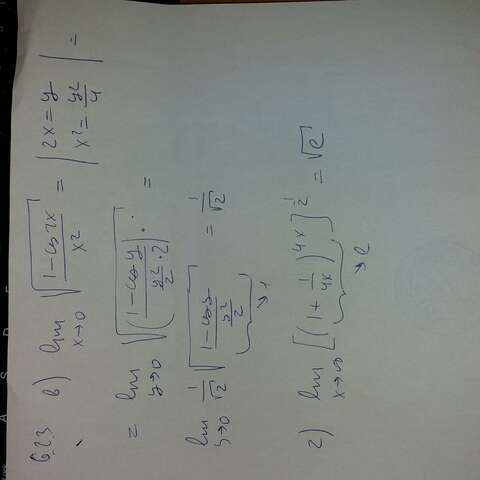 6.23 в) lim x→0 √((1-cos2x)/x²) = | 2x = y  x² = y²/4 | =
= lim y→0 √((1-cos y)/(y²/2 · 2)) · =
lim y→0 1/√2 √((1-cos y)/(y²/2)) = 1/√2
→ 1
г) lim x→∞ [(1 + 1/4x)^4x]^1/2 = √e
→ e